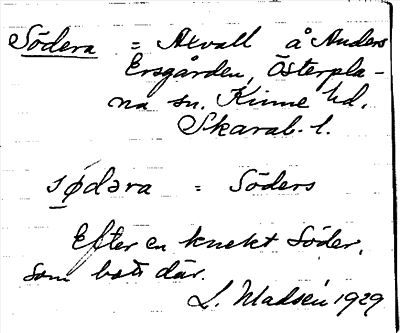 Södera = Axvall å Anders
Ersgården, Österpla-
na sn. Kinne hd.
Skarab. l.
sødəra = Söders
Efter en knekt Söder,
som bott där.
L. Madsén 1929